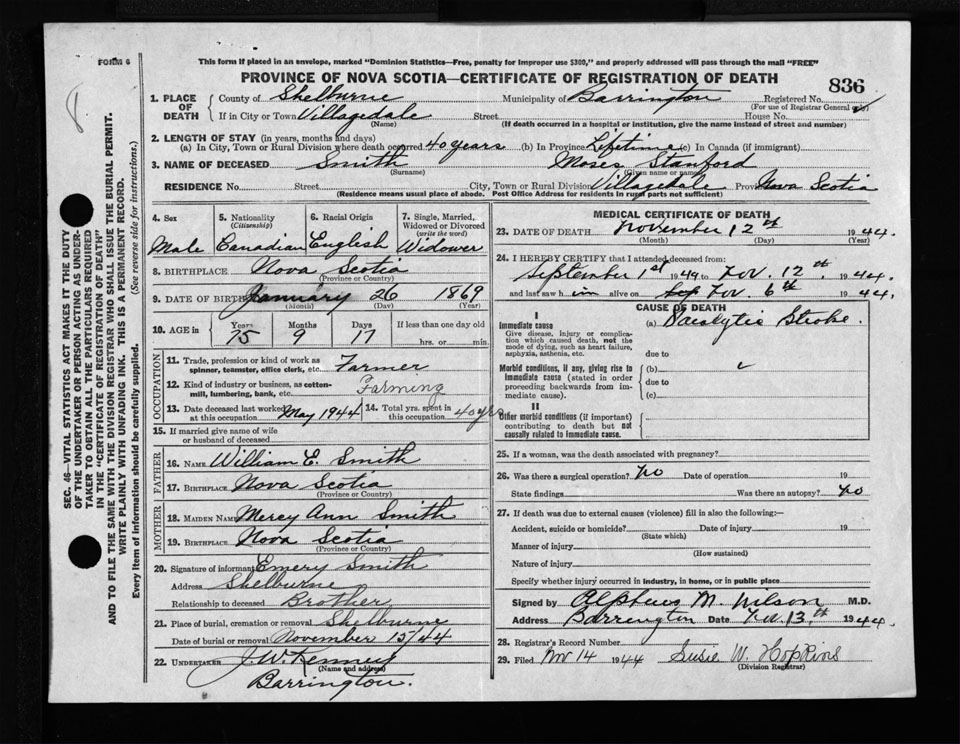 FORM 6
This form if placed in an envelope, marked "Dominion Statistics—Free, penalty for improper use $300," and properly addressed will pass through the mail "FREE"
PROVINCE OF NOVA SCOTIA—CERTIFICATE OF REGISTRATION OF DEATH
836
8
1. PLACE OF DEATH
County of Shelburne Municipality of Barrington Registered No.
(For use of Registrar General only)
If in City or Town Villagedale Street House No.
(Name) (If death occurred in a hospital or institution, give the name instead of street and number)
2. LENGTH OF STAY (in years, months and days)
(a) In City, Town or Rural Division where death occurred 40 years (b) In Province Lifetime (c) In Canada (if immigrant)
3. NAME OF DECEASED Smith Moses Stanford
(Surname) (Given name or names)
RESIDENCE No. Street City, Town or Rural Division Villagedale Province Nova Scotia
(Residence means usual place of abode. Post Office Address for residents in rural parts not sufficient)
4. Sex
Male
5. Nationality
(Citizenship)
Canadian
6. Racial Origin
English
7. Single, Married, Widowed or Divorced
(write the word)
Widower
8. BIRTHPLACE Nova Scotia
(Province or Country)
9. DATE OF BIRTH January 26 1869
(Month) (Day) (Year)
10. AGE in
Years Months Days If less than one day old
75 9 17 hrs. or min.
OCCUPATION
11. Trade, profession or kind of work as spinner, teamster, office clerk, etc. Farmer
12. Kind of industry or business, as cotton-mill, lumbering, bank, etc. Farming
13. Date deceased last worked at this occupation May 1944
14. Total yrs. spent in this occupation 40 yrs
15. If married give name of wife or husband of deceased
FATHER
16. NAME William E. Smith
17. BIRTHPLACE Nova Scotia
(Province or Country)
MOTHER
18. MAIDEN NAME Mercy Ann Smith
19. BIRTHPLACE Nova Scotia
(Province or Country)
20. Signature of informant Emery Smith
Address Shelburne
Relationship to deceased Brother
21. Place of burial, cremation or removal Shelburne
Date of burial or removal November 15/44
22. UNDERTAKER J. W. Kenney
(Name and address)
Barrington.
MEDICAL CERTIFICATE OF DEATH
23. DATE OF DEATH November 12th 1944.
(Month) (Day) (Year)
24. I HEREBY CERTIFY that I attended deceased from:
September 1st 1944 to Nov. 12th 1944.
and last saw him alive on Nov. 6th 1944.
CAUSE OF DEATH
I
Immediate cause
Give disease, injury or complication which caused death, not the mode of dying, such as heart failure, asphyxia, asthenia, etc.
(a) Paralytic Stroke.
due to
Morbid conditions, if any, giving rise to immediate cause (stated in order proceeding backwards from immediate cause).
(b)
due to
(c)
II
Other morbid conditions (if important) contributing to death but not causally related to immediate cause.
25. If a woman, was the death associated with pregnancy?
26. Was there a surgical operation? No Date of operation 19
State findings Was there an autopsy? No
27. If death was due to external causes (violence) fill in also the following:—
Accident, suicide or homicide? Date of injury 19
(State which)
Manner of injury
(How sustained)
Nature of injury
Specify whether injury occurred in industry, in home, or in public place
Signed by Alpheus M. Wilson M.D.
Address Barrington Date Nov. 13th 1944.
28. Registrar's Record Number
29. Filed Nov 14 1944 Susie W. Hopkins
(Division Registrar)
SEC. 46—VITAL STATISTICS ACT MAKES IT THE DUTY
OF THE UNDERTAKER OR PERSON ACTING AS UNDER-
TAKER TO OBTAIN ALL THE PARTICULARS REQUIRED
IN THE "CERTIFICATE OF REGISTRATION OF DEATH"
AND TO FILE THE SAME WITH THE DIVISION REGISTRAR WHO SHALL ISSUE THE BURIAL PERMIT.
WRITE PLAINLY WITH UNFADING INK. THIS IS A PERMANENT RECORD.
Every item of information should be carefully supplied. (See reverse side for instructions.)